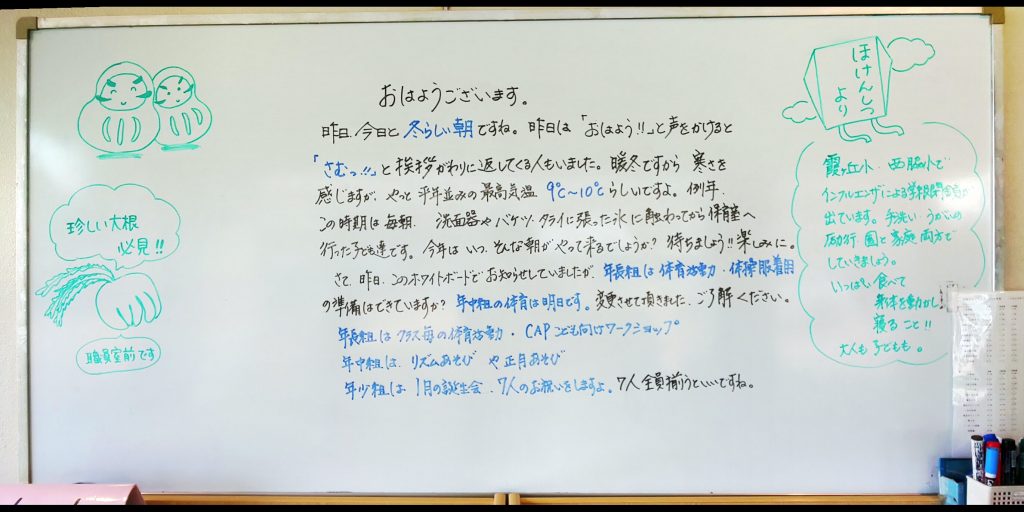 おはようございます。
昨日、今日と 冬らしい朝ですね。昨日は「おはよう!!」と声をかけると
「さむっ!!」と挨拶がわりに返してくる人もいました。暖冬ですから 寒さを
感じますが、やっと平年並みの最高気温 9℃〜10℃らしいですよ。例年、
この時期は毎朝、洗面器やバケツ・タライに張った氷に触わってから保育室へ
行った子ども達です。今年は いつ、そんな朝がやって来るでしょうか? 待ちましょう!! 楽しみに。
さて、昨日、このホワイトボードでお知らせしていましたが、年長組は体育活動・体操服着用
の準備はできていますか? 年中組の体育は明日です。変更させて頂きました、ご了解ください。
年長組は クラス毎の体育活動・CAPこども向けワークショップ
年中組は、リズムあそび や 正月あそび
年少組は 1月の誕生会、7人のお祝いをしますよ。7人全員揃うといいですね。
珍しい大根
必見!!
職員室前です
ほけんしつ
より
霞ヶ丘小、西脇小で
インフルエンザによる学級閉
出ています。手洗い うがいの
励行、園と家庭 両方で
していきましょう。
いっぱい 食べて
身体を動かし
寝ること!!
大人も子どもも。